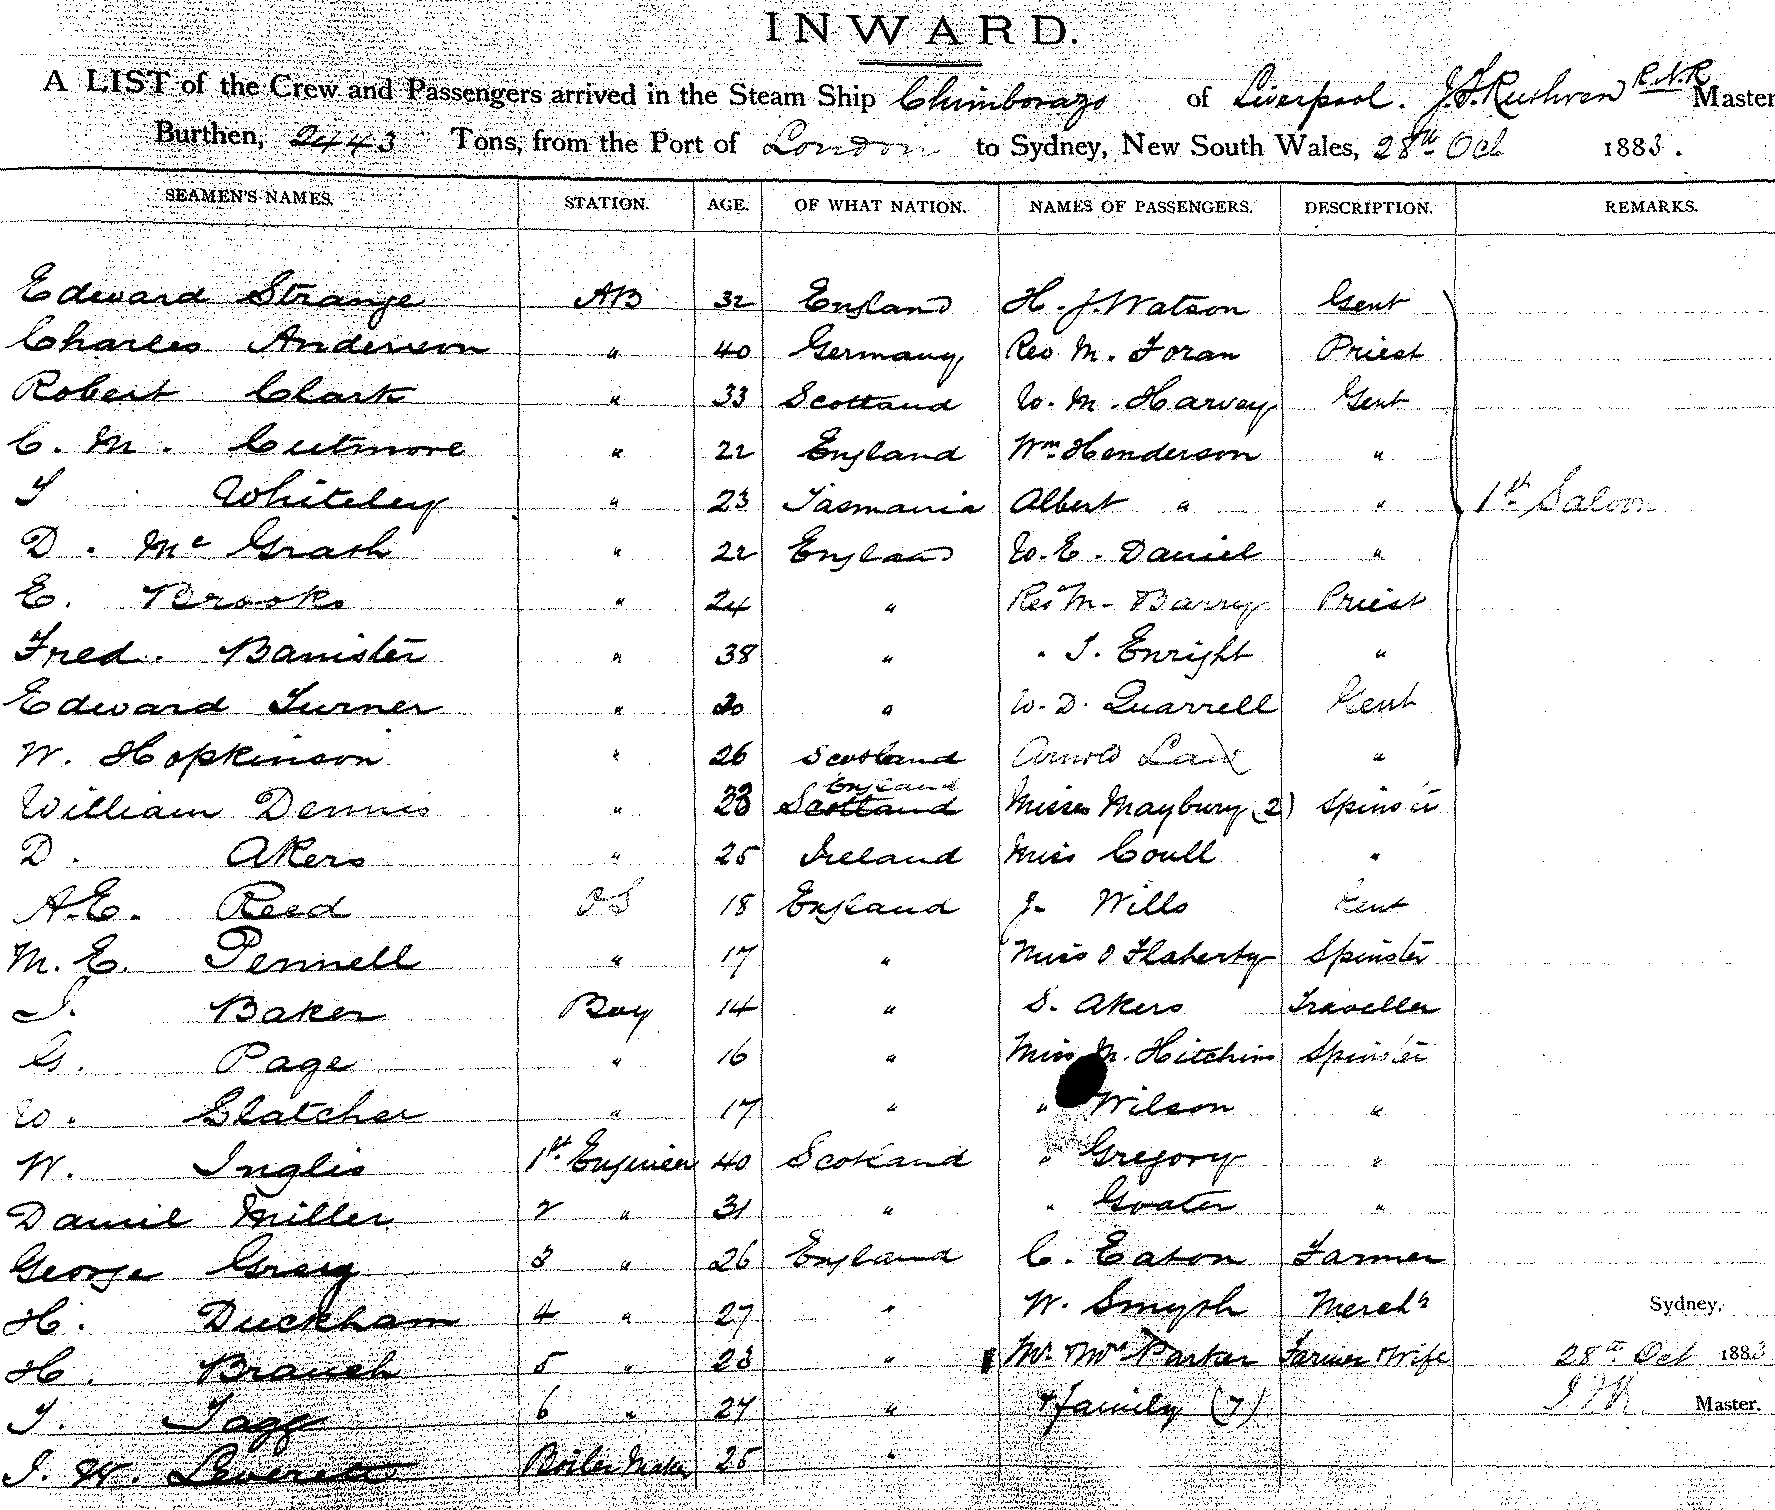 INWARD.
A LIST of the Crew and Passengers arrived in the Steam Ship Chimborazo of Liverpool. J.F. Ruthven R.N.R Master
Burthen, 2443 Tons, from the Port of London to Sydney, New South Wales, 28th Oct 1883.
SEAMEN'S NAMES. STATION. AGE. OF WHAT NATION. NAMES OF PASSENGERS. DESCRIPTION. REMARKS.
Edward Strange AB 32 England H. J. Watson Gent
Charles Anderson " 40 Germany Rev M. Foran Priest
Robert Clark " 33 Scotland W. M. Harvey Gent
C. M. Cutmore " 22 England Wm Henderson "
T Whiteley " 23 Tasmania Albert " " 1st Saloon
D. Mc Grath " 22 England W. E. Daniel "
E. Brooks " 24 " Rev M. Barry Priest
Fred. Banister " 38 " " T. Enright "
Edward Turner " " W. D. Quarrell Gent
W. Hopkinson " 26 Scotland Arnold "
England
William Dennis " 23 Scotland Misses Maybury (2) Spinster
D. Akers " 25 Ireland Miss Coull "
A.E. Reed OS 18 England J. Wills Gent
M. E. Pennell " 17 " Miss O Flaherty Spinster
J. Baker Boy 14 " S. Akers Traveller
G. Page " 16 " Miss M. Hitchins Spinster
W. Slatcher " 17 " " Wilson "
W. Inglis 1st Engineer 40 Scotland " Gregory "
Daniel Miller 2 " 31 " " Goater "
George Greig 3 " 26 England C. Eaton Farmer
H. Duckham 4 " 27 " W. Smyth Mercht Sydney,
H. Branch 5 " 23 " Mr & Mrs Parker Farmer & Wife 28th Oct 1883
T. Tagg 6 " 27 " & family (7) J F R Master.
J. W. Leverett Boiler Maker 25 "